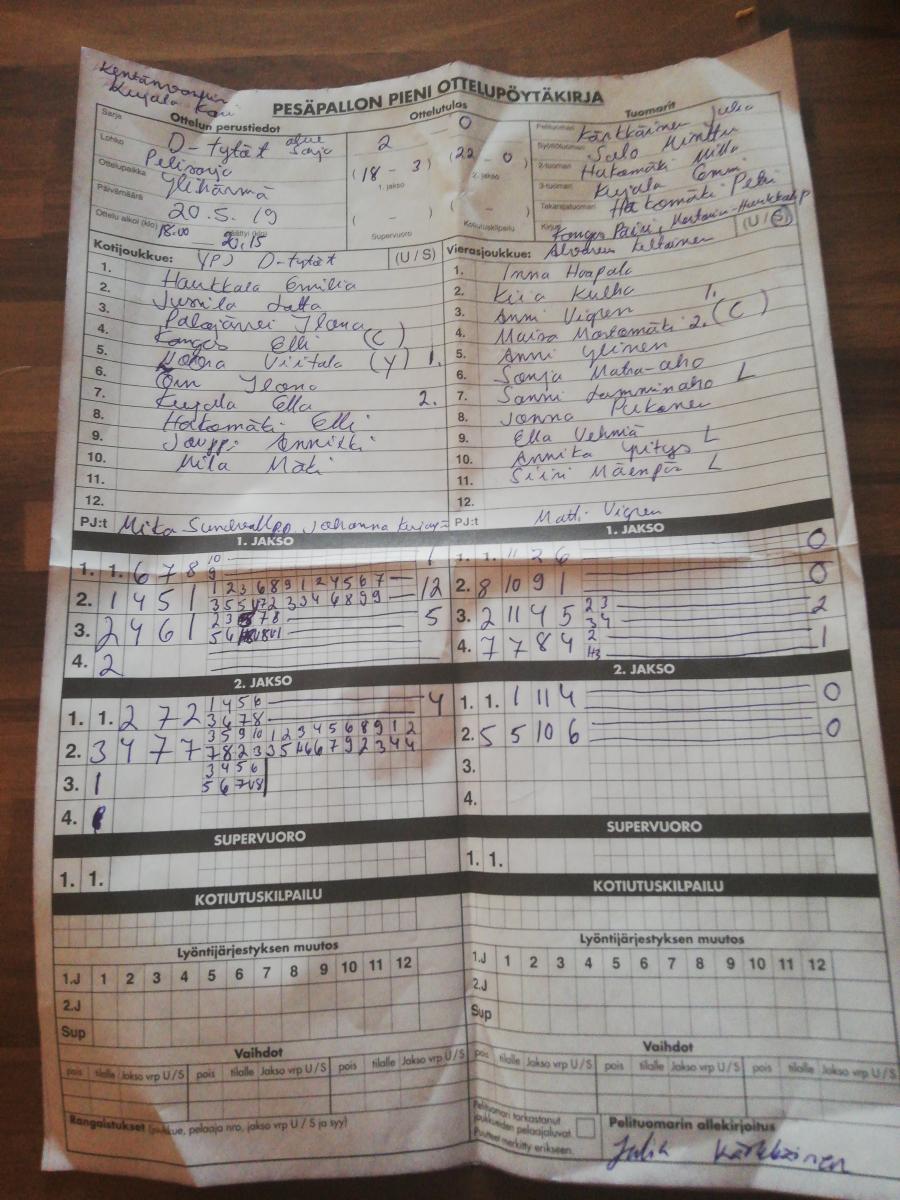 Kentänvarppi
Kujala
PESÄPALLON PIENI OTTELUPÖYTÄKIRJA
Ottelun perustiedot
Ottelutulos
Tuomarit
Sarja D-tytöt
Lohko Pelisarja
Ottelupaikka Ylihärmä
Päivämäärä 20.5.19
Ottelu alkoi (klo) 18.00 Päättyi (klo) 20.15
2 - 0
(18 - 3) (22 - 0)
1. jakso 2. jakso
( - ) ( - )
Supervuoro Kotiutuskilpailu
Pelituomari Kärkkäinen Julia
Syöttötuomari Salo Minttu
2-tuomari Hakomäki Milla
3-tuomari Kujala Emmi
Takarajatuomari Hakomäki Petri
Kirjuri Kangas Päivi,
Kotijoukkue: YPJ D-tytöt (U / S)
1. Haukkala Emilia
2. Jussila Lotta
3. Palojärvi Ilona
4. Kangas Elli (C)
5. Noora Viitala (Y) 1.
6. Ilona
7. Kujala Ella 2.
8. Hakomäki Elli
9. Jouppi Annikki
10. Mila Mäki
11.
12.
PJ:t Mika Sundvall Johanna
Vierasjoukkue: Alvaren (U / S)
1. Inna Haapala
2. Kiia Kulha
3. Anni Vigren 1.
4. Maisa 2. (C)
5. Anni Ylinen
6. Sonja Matra-aho
7. Sanni Lamminaho L
8. Jonna
9. Ella Vehmiä
10. Annika Yritys L
11. Siiri Mäenpää L
12.
PJ:t Matti Vigren
1. JAKSO
1. 1. 6 7 8 10 9 1
2. 1 4 5 1 1 2 3 6 8 9 1 2 4 5 6 7 12
3. 2 4 6 1 5
4. 2
1. JAKSO
1. 1. 11 2 6 0
2. 8 10 9 1 0
3. 2 11 4 5 2 3 3 4 2
4. 7 7 8 4 1
2. JAKSO
1. 1. 2 7 2 1 4 5 6 4
3 6 7 8
2. 3 4 7 7 3 5 9 10 1 2 3 4 5 6 8 9 1 2
7 8 2 3 3 5 4 6 6 7 9 2 3 4 4
3. 1 3 4 5 6
4.
2. JAKSO
1. 1. 1 11 4 0
2. 5 5 10 6 0
3.
4.
SUPERVUORO
1. 1.
SUPERVUORO
1. 1.
KOTIUTUSKILPAILU
KOTIUTUSKILPAILU
Lyöntijärjestyksen muutos
1.J 1 2 3 4 5 6 7 8 9 10 11 12
2.J
Sup
Lyöntijärjestyksen muutos
1.J 1 2 3 4 5 6 7 8 9 10 11 12
2.J
Sup
Vaihdot
pois tilalle Jakso vrp U / S pois tilalle Jakso vrp U / S pois tilalle Jakso vrp U / S
Vaihdot
pois tilalle Jakso vrp U / S pois tilalle Jakso vrp U / S pois tilalle Jakso vrp U / S
Rangaistukset (joukkue, pelaaja nro, jakso vrp U / S ja syy)
Pelituomari tarkastanut
joukkueiden pelaajaluvat.
Puutteet merkitty erikseen.
Pelituomarin allekirjoitus
Julia Kärkkäinen